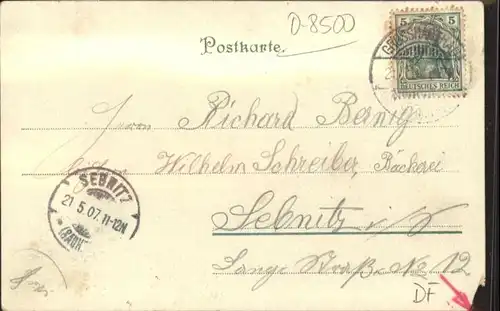 D-8500
Postkarte.
5 5
DEUTSCHES REICH
Herrn Richard Bernig
Wilhelm Schreiber, Bäckerei
SEBNITZ
21.5.07. 11-12N
Sebnitz i/S
Lange Straße No 12
DF